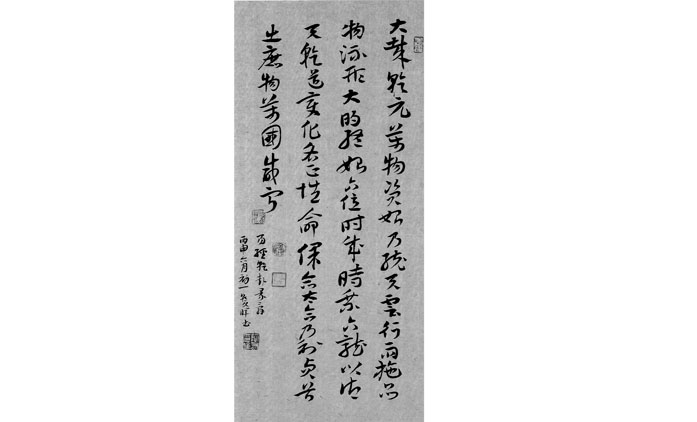 大哉乾元萬物資始乃統天雲行雨施品
物流形大明終始六位時成時乘六龍以御
天乾道變化各正性命保合太和乃利貞首
出庶物萬國咸寧
易經乾卦彖辭
丙申六月初一